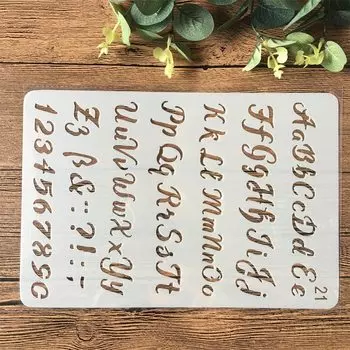 AaBbCcDdEe
21
FfGgHhIiJj
KkLlMmNnOo
PpQqRrSsTt
UuVvWwXxYy
Zzß&::?!:;
1234567890